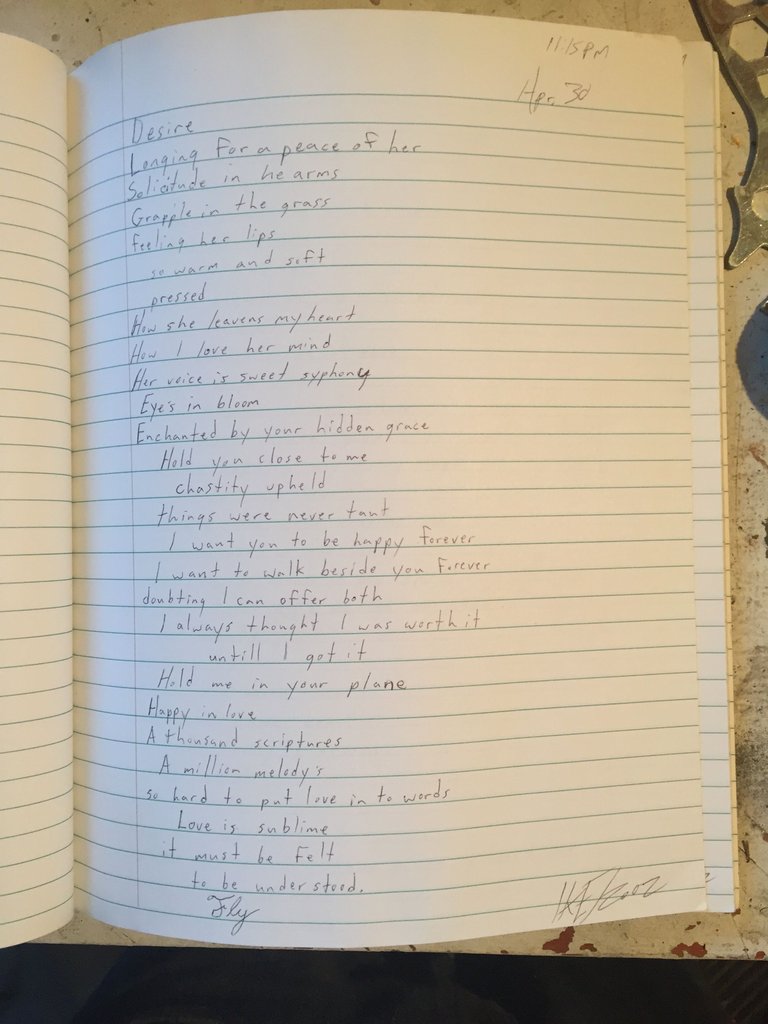 11:15PM
Apr. 30
Desire
Longing For a peace of her
Solicitude in he arms
Grapple in the grass
feeling her lips
so warm and soft
pressed
How she leavens my heart
How I love her mind
Her voice is sweet syphony
Eye's in bloom
Enchanted by your hidden grace
Hold you close to me
chastity upheld
things were never taut
I want you to be happy forever
I want to walk beside you Forever
doubting I can offer both
I always thought I was worth it
untill I got it
Hold me in your plane
Happy in love
A thousand scriptures
A million melody's
so hard to put love in to words
Love is sublime
it must be Felt
to be under stood.
Fly